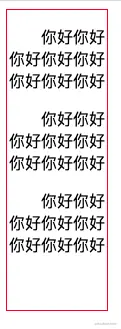 你好你好
你好你好你好
你好你好你好
你好你好
你好你好你好
你好你好你好
你好你好
你好你好你好
你好你好你好